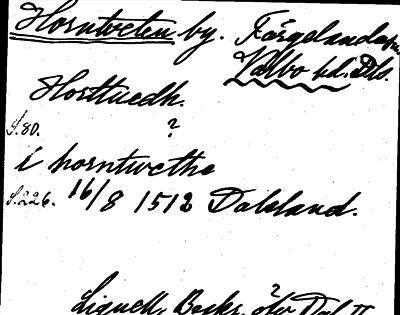 Horntveten by. Färgelanda sn.
Valbo hd. Dls.
Horttuedh.
S.80. ?
i horntwethe
S.226. 16/8 1512 Dalsland.
Lignell, Beskr. öfv Dal II